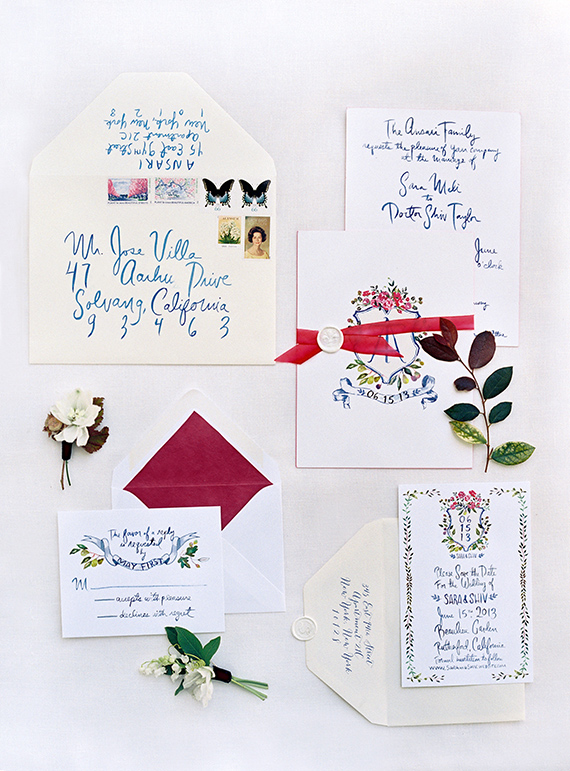 ANSARI
45 East 9th Street
Apartment 21C
New York, New York
1 0
2 8
Mr. Jose Villa
47 Aarhu Drive
Solvang, California
9 3 4 6 3
The Ansari Family
requests the pleasure of your company
at the marriage of
Sara Meli
to
Doctor Shiv Taylor
June
o'clock
06.15.13
The favor of a reply
is requested
by
MAY FIRST
M
accepts with pleasure
declines with regret
Apartment 21C
New York, New York
06
15
13
SARA & SHIV
Please Save the Date
For the Wedding of
SARA & SHIV
June 15th 2013
Beaulieu Garden
Rutherford, California
Formal invitation to follow